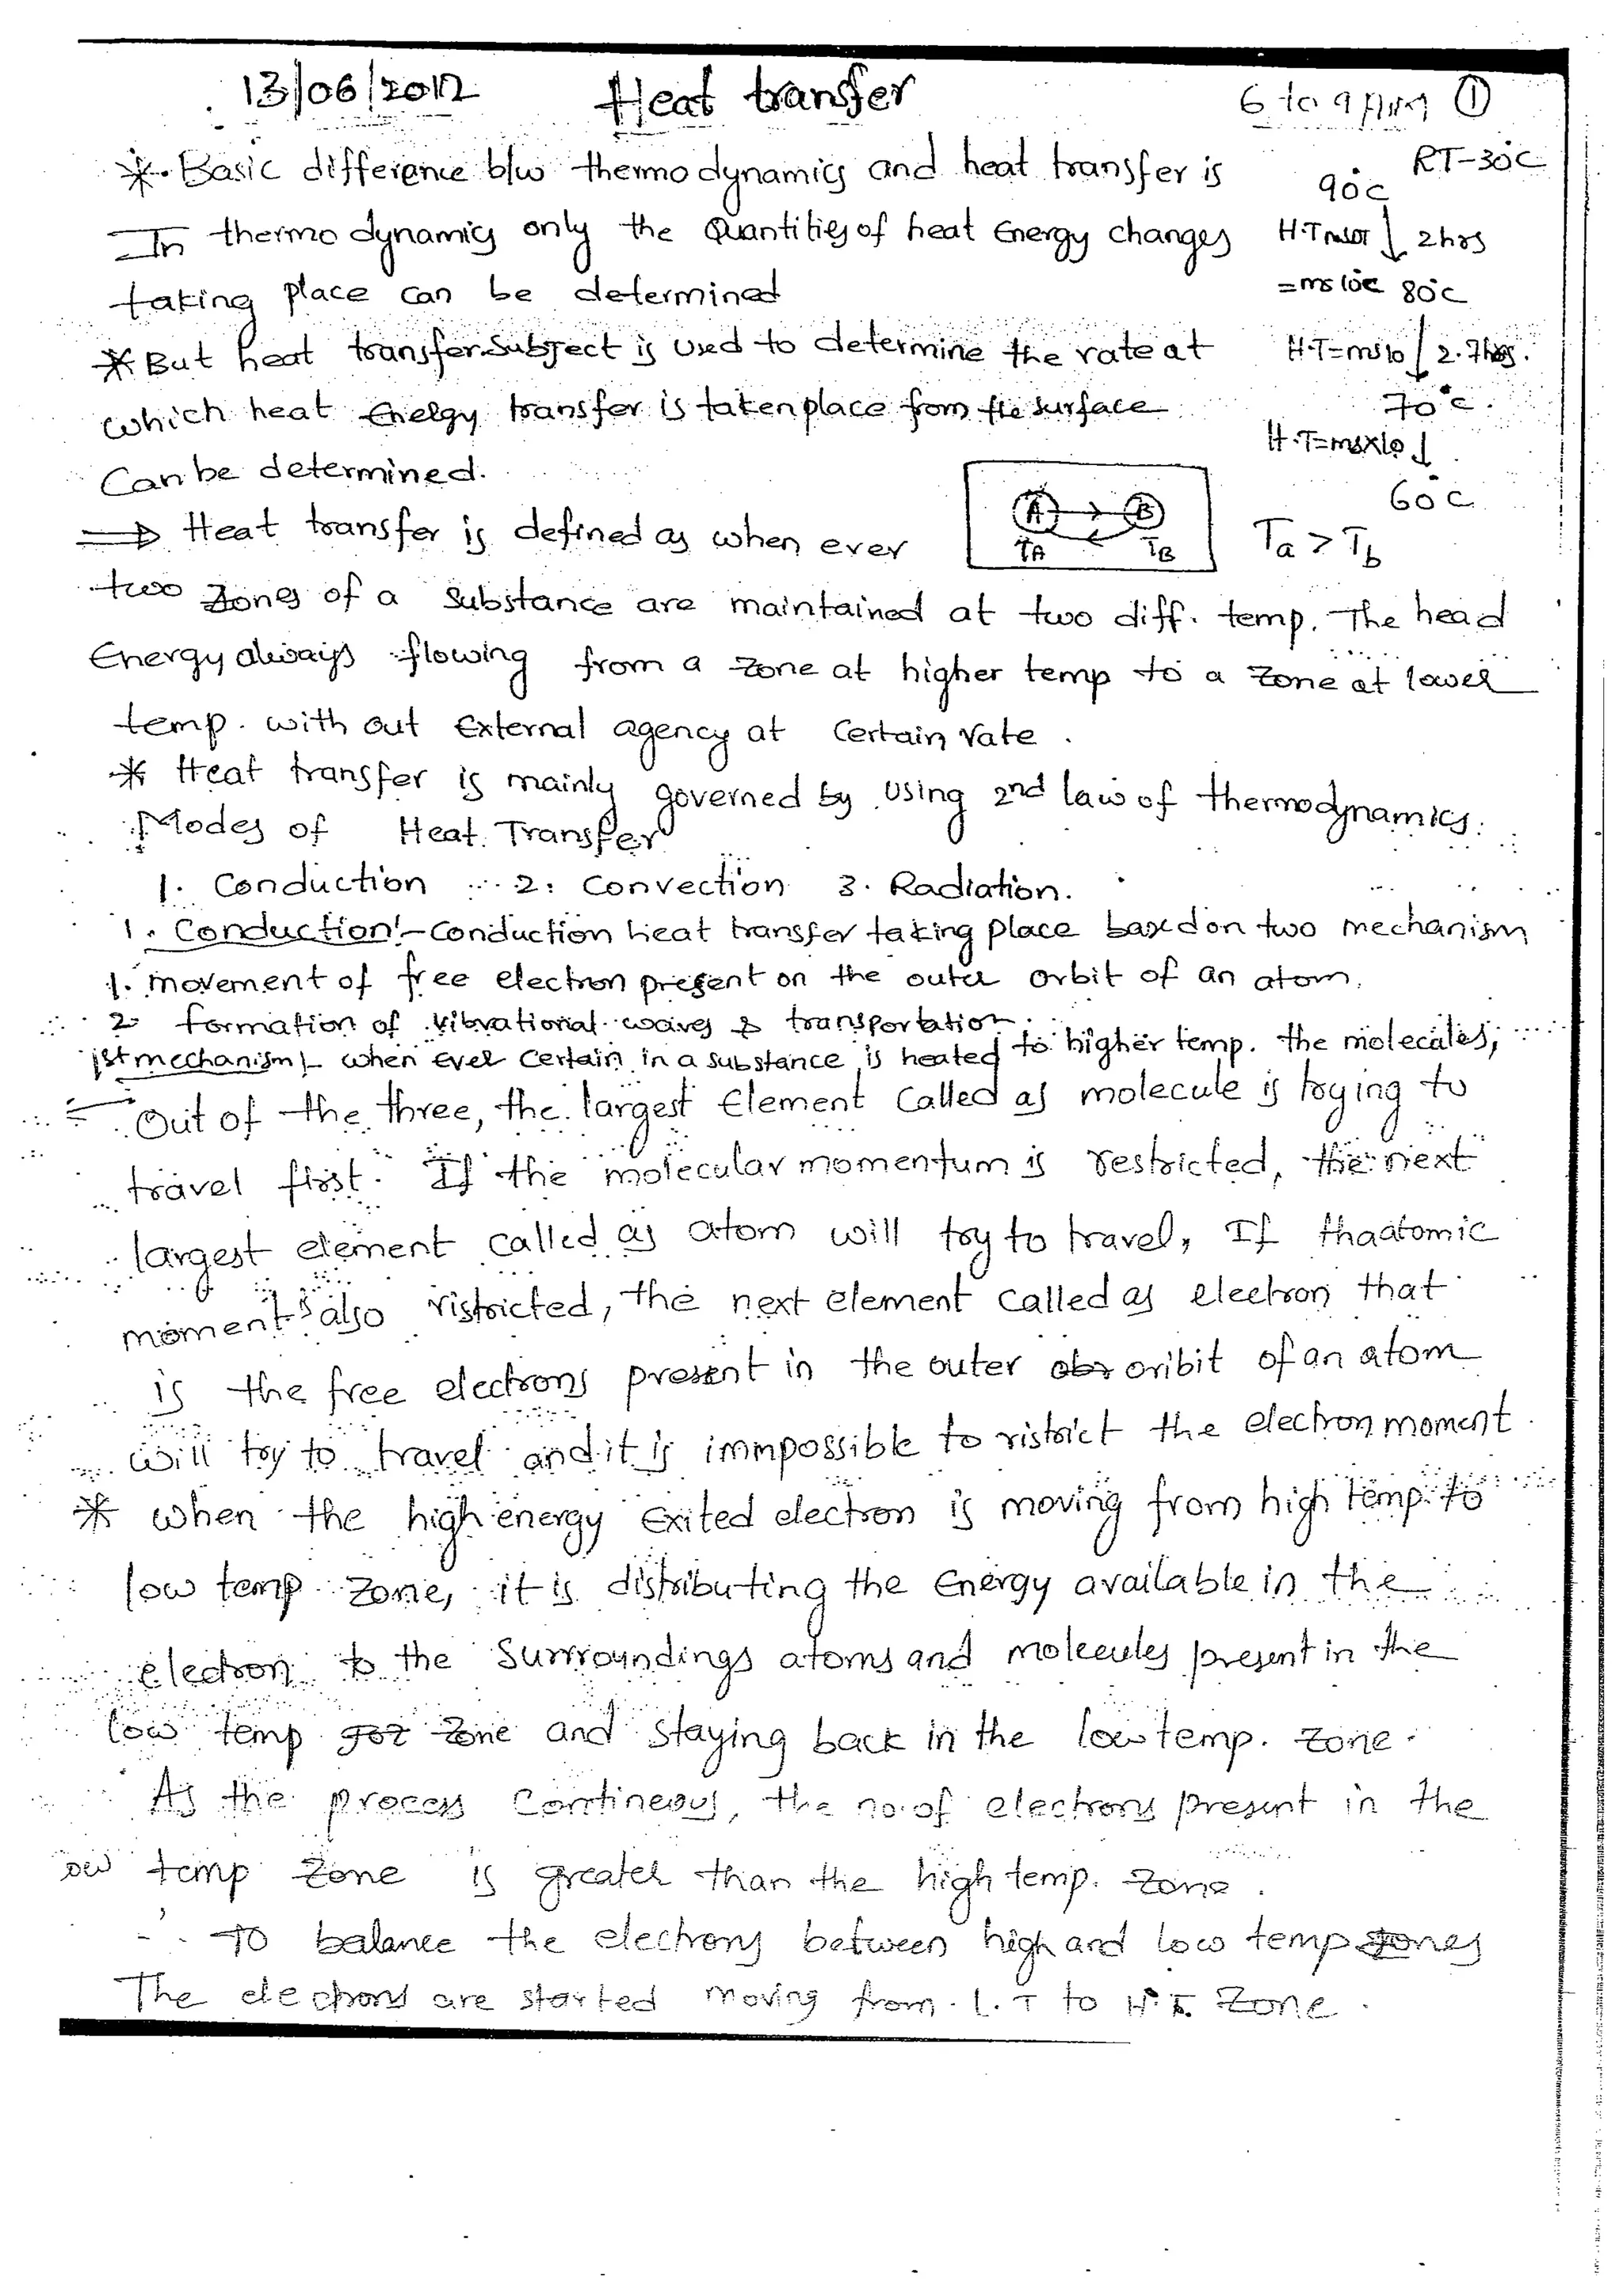 13/06/2012 Heat transfer 6 to 9 ①
RT-30°C
*. Basic difference b/w thermodynamics and heat transfer is
90°C
In thermodynamics only the Quantities of heat Energy changes
H.T ↓ 2hrs
taking place can be determined
=ms 10°C 80°C
* But heat transfer subject is used to determine the rate at
H.T=ms10 ↓ 2.7hrs.
which heat Energy transfer is taken place from the surface
70°C.
H.T=msx10 ↓
Can be determined.
60°C
A → B
TA TB
Ta > Tb
⇒ Heat transfer is defined as when ever
two zones of a substance are maintained at two diff. temp. The head
Energy always flowing from a zone at higher temp to a zone at lower
temp. with out External agency at Certain rate.
* Heat transfer is mainly governed by using 2nd law of thermodynamics.
Modes of Heat Transfer
1. Conduction 2. Convection 3. Radiation.
1. Conduction:- Conduction heat transfer taking place based on two mechanism
1. movement of free electron present on the outer orbit of an atom.
2. formation of vibrational waves & transportation.
1st mechanism:- when ever certain in a substance is heated to higher temp. the molecules,
Out of the three, the largest Element Called as molecule is trying to
travel first. If the molecular momentum is restricted, the next
largest element called as atom will try to travel, If tha atomic
moment is also ristricted, the next element called as electron that
is the free electrons present in the outer obr oribit of an atom
will try to travel and it is immpossible to ristrict the electron moment
* when the high energy Exited electron is moving from high temp. to
low temp zone, it is distributing the Energy available in the
electron to the Surrroundings atoms and molecules present in the
low temp zone and staying back in the low temp. zone.
As the process Contineous, the no. of electrons present in the
ow temp zone is greater than the high temp. zone.
To balance the electrons between high and low temp zones
The electrons are started moving from L.T to H.T. Zone.